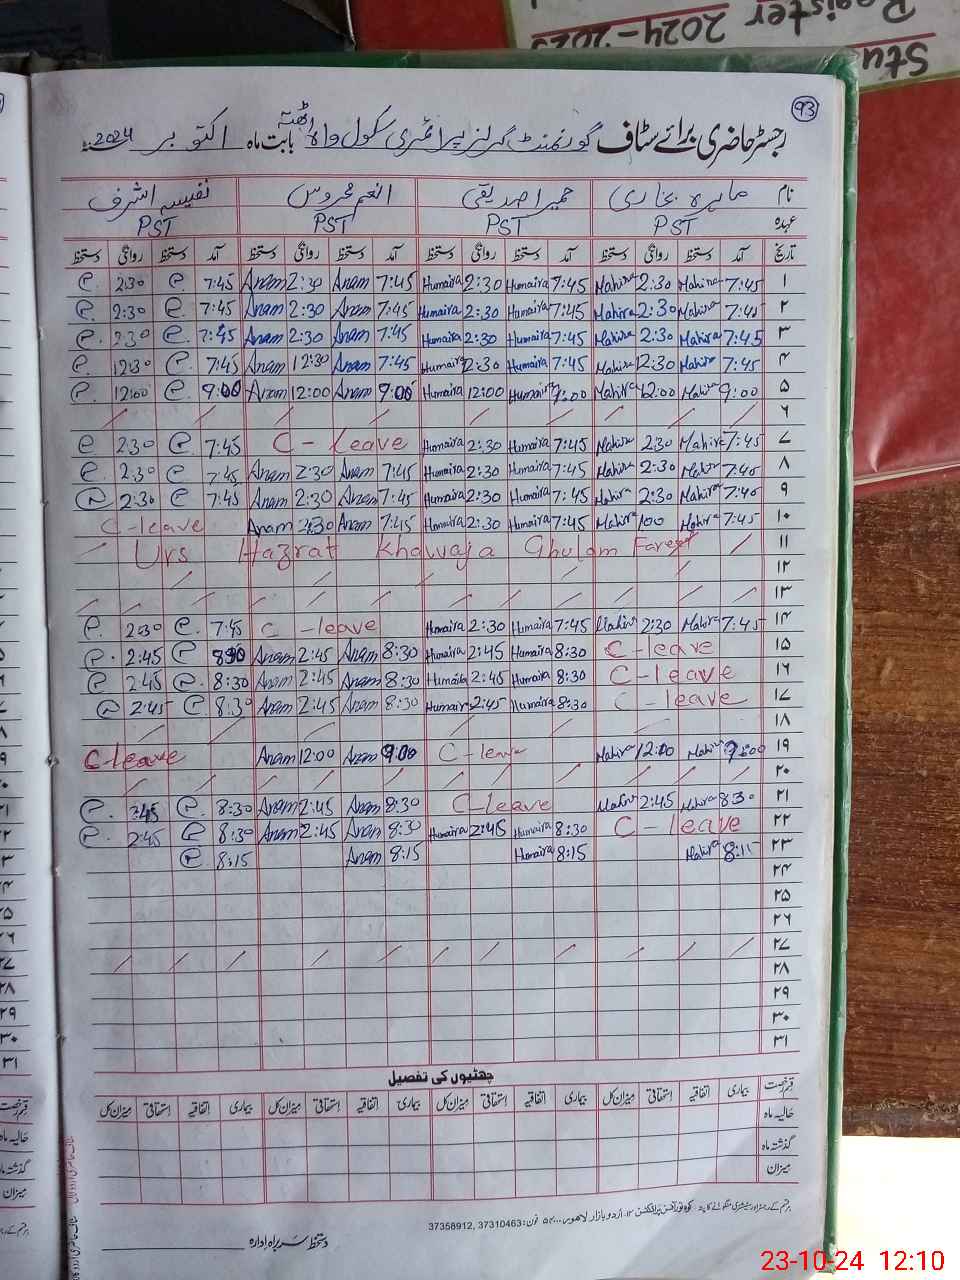 Register 2024-2025
93
رجسٹر حاضری برائے سٹاف گورنمنٹ گرلز پرائمری سکول واہ بابت ماہ اکتوبر 2024
نام ماہرہ بخاری حمیرا صدیقی انعم محروس نفیسہ اشرف
عہدہ PST PST PST PST
تاریخ آمد دستخط روانگی دستخط آمد دستخط روانگی دستخط آمد دستخط روانگی دستخط آمد دستخط روانگی دستخط
۱ 7:45 Mahira 2:30 Mahira 7:45 Humaira 2:30 Humaira 7:45 Anam 2:30 Anam 7:45 2:30
۲ 7:45 Mahira 2:30 Mahira 7:45 Humaira 2:30 Humaira 7:45 Anam 2:30 Anam 7:45 2:30
۳ 7:45 Mahira 2:30 Mahira 7:45 Humaira 2:30 Humaira 7:45 Anam 2:30 Anam 7:45 2:30
۴ 7:45 Mahira 12:30 Mahira 7:45 Humaira 12:30 Humaira 7:45 Anam 12:30 Anam 7:45 12:30
۵ 9:00 Mahira 12:00 Mahira 9:00 Humaira 12:00 Humaira 9:00 Anam 12:00 Anam 9:00 12:00
۶
۷ 7:45 Mahira 2:30 Mahira 7:45 Humaira 2:30 Humaira C-leave 7:45 2:30
۸ 7:45 Mahira 2:30 Mahira 7:45 Humaira 2:30 Humaira 7:45 Anam 2:30 Anam 7:45 2:30
۹ 7:45 Mahira 2:30 Mahira 7:45 Humaira 2:30 Humaira 7:45 Anam 2:30 Anam 7:45 2:30
۱۰ 7:45 Mahira 1:00 Mahira 7:45 Humaira 2:30 Humaira 7:45 Anam 2:30 Anam C-leave
۱۱ Urs Hazrat Khawaja Ghulam Fareed
۱۲
۱۳
۱۴ 7:45 Mahira 2:30 Mahira 7:45 Humaira 2:30 Humaira C-leave 7:45 2:30
۱۵ C-leave 8:30 Humaira 2:45 Humaira 8:30 Anam 2:45 Anam 8:30 2:45
۱۶ C-leave 8:30 Humaira 2:45 Humaira 8:30 Anam 2:45 Anam 8:30 2:45
۱۷ C-leave 8:30 Humaira 2:45 Humaira 8:30 Anam 2:45 Anam 8:30 2:45
۱۸
۱۹ 9:00 Mahira 12:00 Mahira C-leave 9:00 Anam 12:00 Anam C-leave
۲۰
۲۱ 8:30 Mahira 2:45 Mahira C-leave 8:30 Anam 2:45 Anam 8:30 2:45
۲۲ C-leave 8:30 Humaira 2:45 Humaira 8:30 Anam 2:45 Anam 8:30 2:45
۲۳ 8:15 Mahira 8:15 Humaira 8:15 Anam 8:15
۲۴
۲۵
۲۶
۲۷
۲۸
۲۹
۳۰
۳۱
چھٹیوں کی تفصیل
قسم رخصت بیماری اتفاقیہ استحقاقی میزان کل بیماری اتفاقیہ استحقاقی میزان کل بیماری اتفاقیہ استحقاقی میزان کل بیماری اتفاقیہ استحقاقی میزان کل
حالیہ ماہ
گذشتہ ماہ
میزان
اردو بازار لاہور فون: 37310463, 37358912
دستخط سربراہ ادارہ
23-10-24 12:10